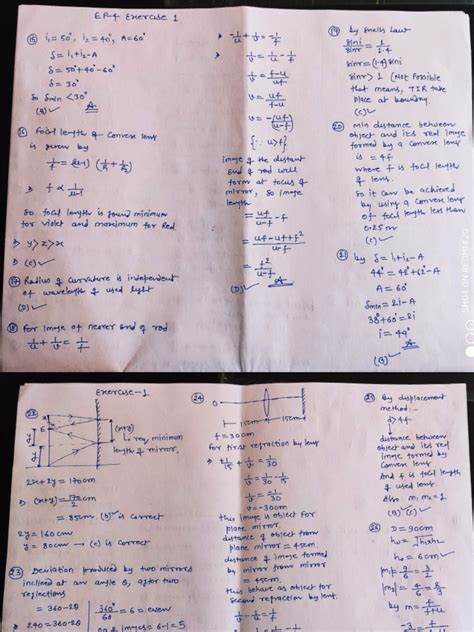 EP-4 Exercise 1
(15) i₁ = 50°, i₂ = 40°, A = 60°
δ = i₁ + i₂ - A
δ = 50° + 40° - 60°
δ = 30°
So δmin < 30°
(A) ✓
(16) Focal length of Convex lens
is given by
1/f = (μ-1) (1/R₁ + 1/R₂)
⇒ f ∝ 1/(μ-1)
So focal length is found minimum
for violet and maximum for Red
⇒ y > z > x
⇒ (c) ✓
(17) Radius of Curvature is independent
of wavelength of used light
(D) ✓
(18) For Image of nearer end of rod
1/u + 1/v = 1/f
⇒ -1/u + 1/v = -1/f
1/v = 1/u - 1/f
1/v = (f-u)/uf
v = uf/(f-u)
v = -uf/(u-f)
{∵ u > f}
Image of the distant
end of rod will
form at focus of
mirror, so image
length
= uf/(u-f) - f
= (uf - uf + f²)/(u-f)
= f²/(u-f)
(D) ✓
(19) by Snells Law
sini/sinr = 1/1.4
sinr = (1.4) sini
sinr > 1 (Not Possible
that means, TIR take
place at boundary.
(c) ✓
(20) min distance between
object and its real image
formed by a convex lens
is = 4f
where f is focal length
of lens.
So it can be achieved
by using a convex lens
of focal length less than
0.25 m
(c) ✓
(21) by δ = i₁ + i₂ - A
44° = 42° + 62° - A
A = 60°
δmin = 2i - A
38° + 60° = 2i
i = 49°
(B) ✓
SHOT ON REDMI
Exercise-1
(22)
(x+y)
req. minimum
length of mirror.
2x + 2y = 170 cm
⇒ (x+y) = 170/2 cm
= 85 cm, (b) ✓ is correct
2y = 160 cm
y = 80 cm → (c) is correct
23) Deviation produced by two mirrors
inclined at an angle θ, after two
reflections
= 360 - 2θ
⇒ 240 = 360 - 2θ
360°/60° = 6 = even
no of images = 6-1 = 5
(24)
15cm
15cm
f = 30cm
for first refraction by lens
1/v = 1/30
v = -30 cm
this image is object for
plane mirror.
distance of object from
plane mirror = 45cm.
distance of image formed
by mirror from mirror
= 45cm.
this behave as object for
second refraction by lens.
1/v - 1/u = 1/f
(25) by displacement
method:-
d > 4f
distance between
object and its real
image formed by
Convex lens
And f is focal length
of used lens.
Also m₁ m₂ = 1
(B) ✓ (c) ✓
(26) D = 90cm
h₀ = √(h₁h₂)
h₀ = 6cm ✓
by m = f/(f+u)